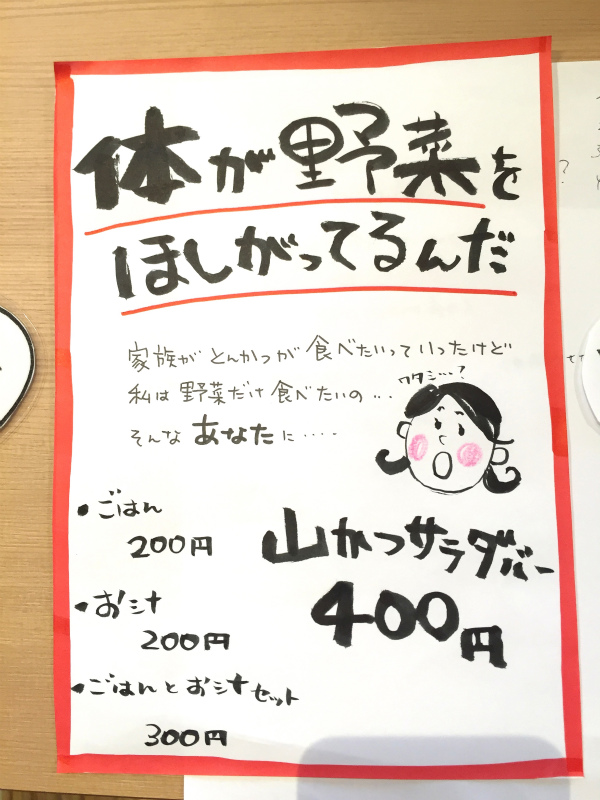 体が野菜を
ほしがってるんだ
家族がとんかつが食べたいっていったけど
私は野菜だけ食べたいの…
ワタシ…?
そんなあなたに‥‥
・ごはん
200円
・お汁
200円
・ごはんとお汁セット
300円
山かつサラダバー
400円
?